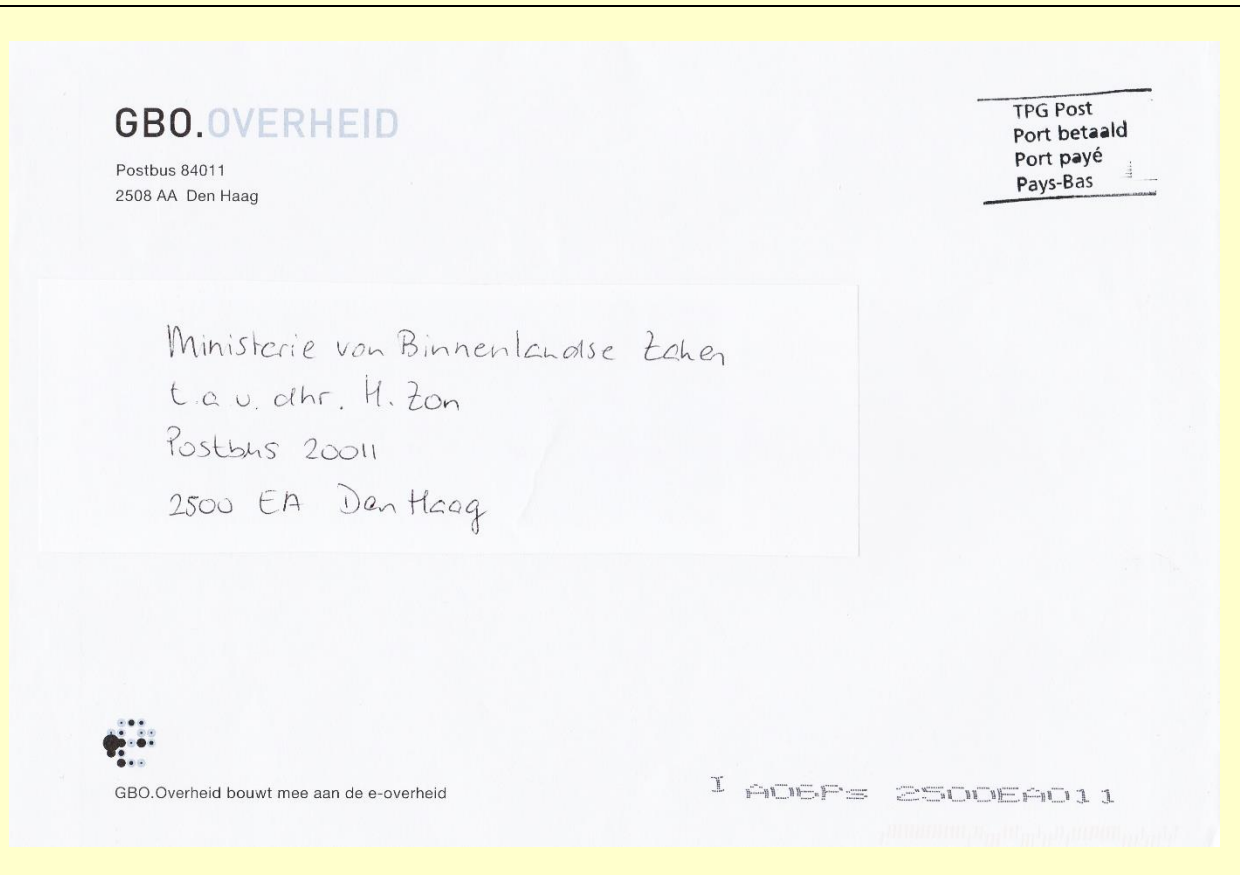 GBO.OVERHEID
Postbus 84011
2508 AA Den Haag
TPG Post
Port betaald
Port payé
Pays-Bas
Ministerie van Binnenlandse Zaken
t.a.v. dhr. H. Zon
Postbus 20011
2500 EA Den Haag
GBO.Overheid bouwt mee aan de e-overheid
I AD6Ps 2500EA011